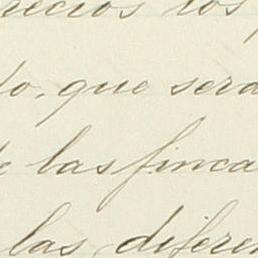 recios los
do, que sera
de las finca
las diferen